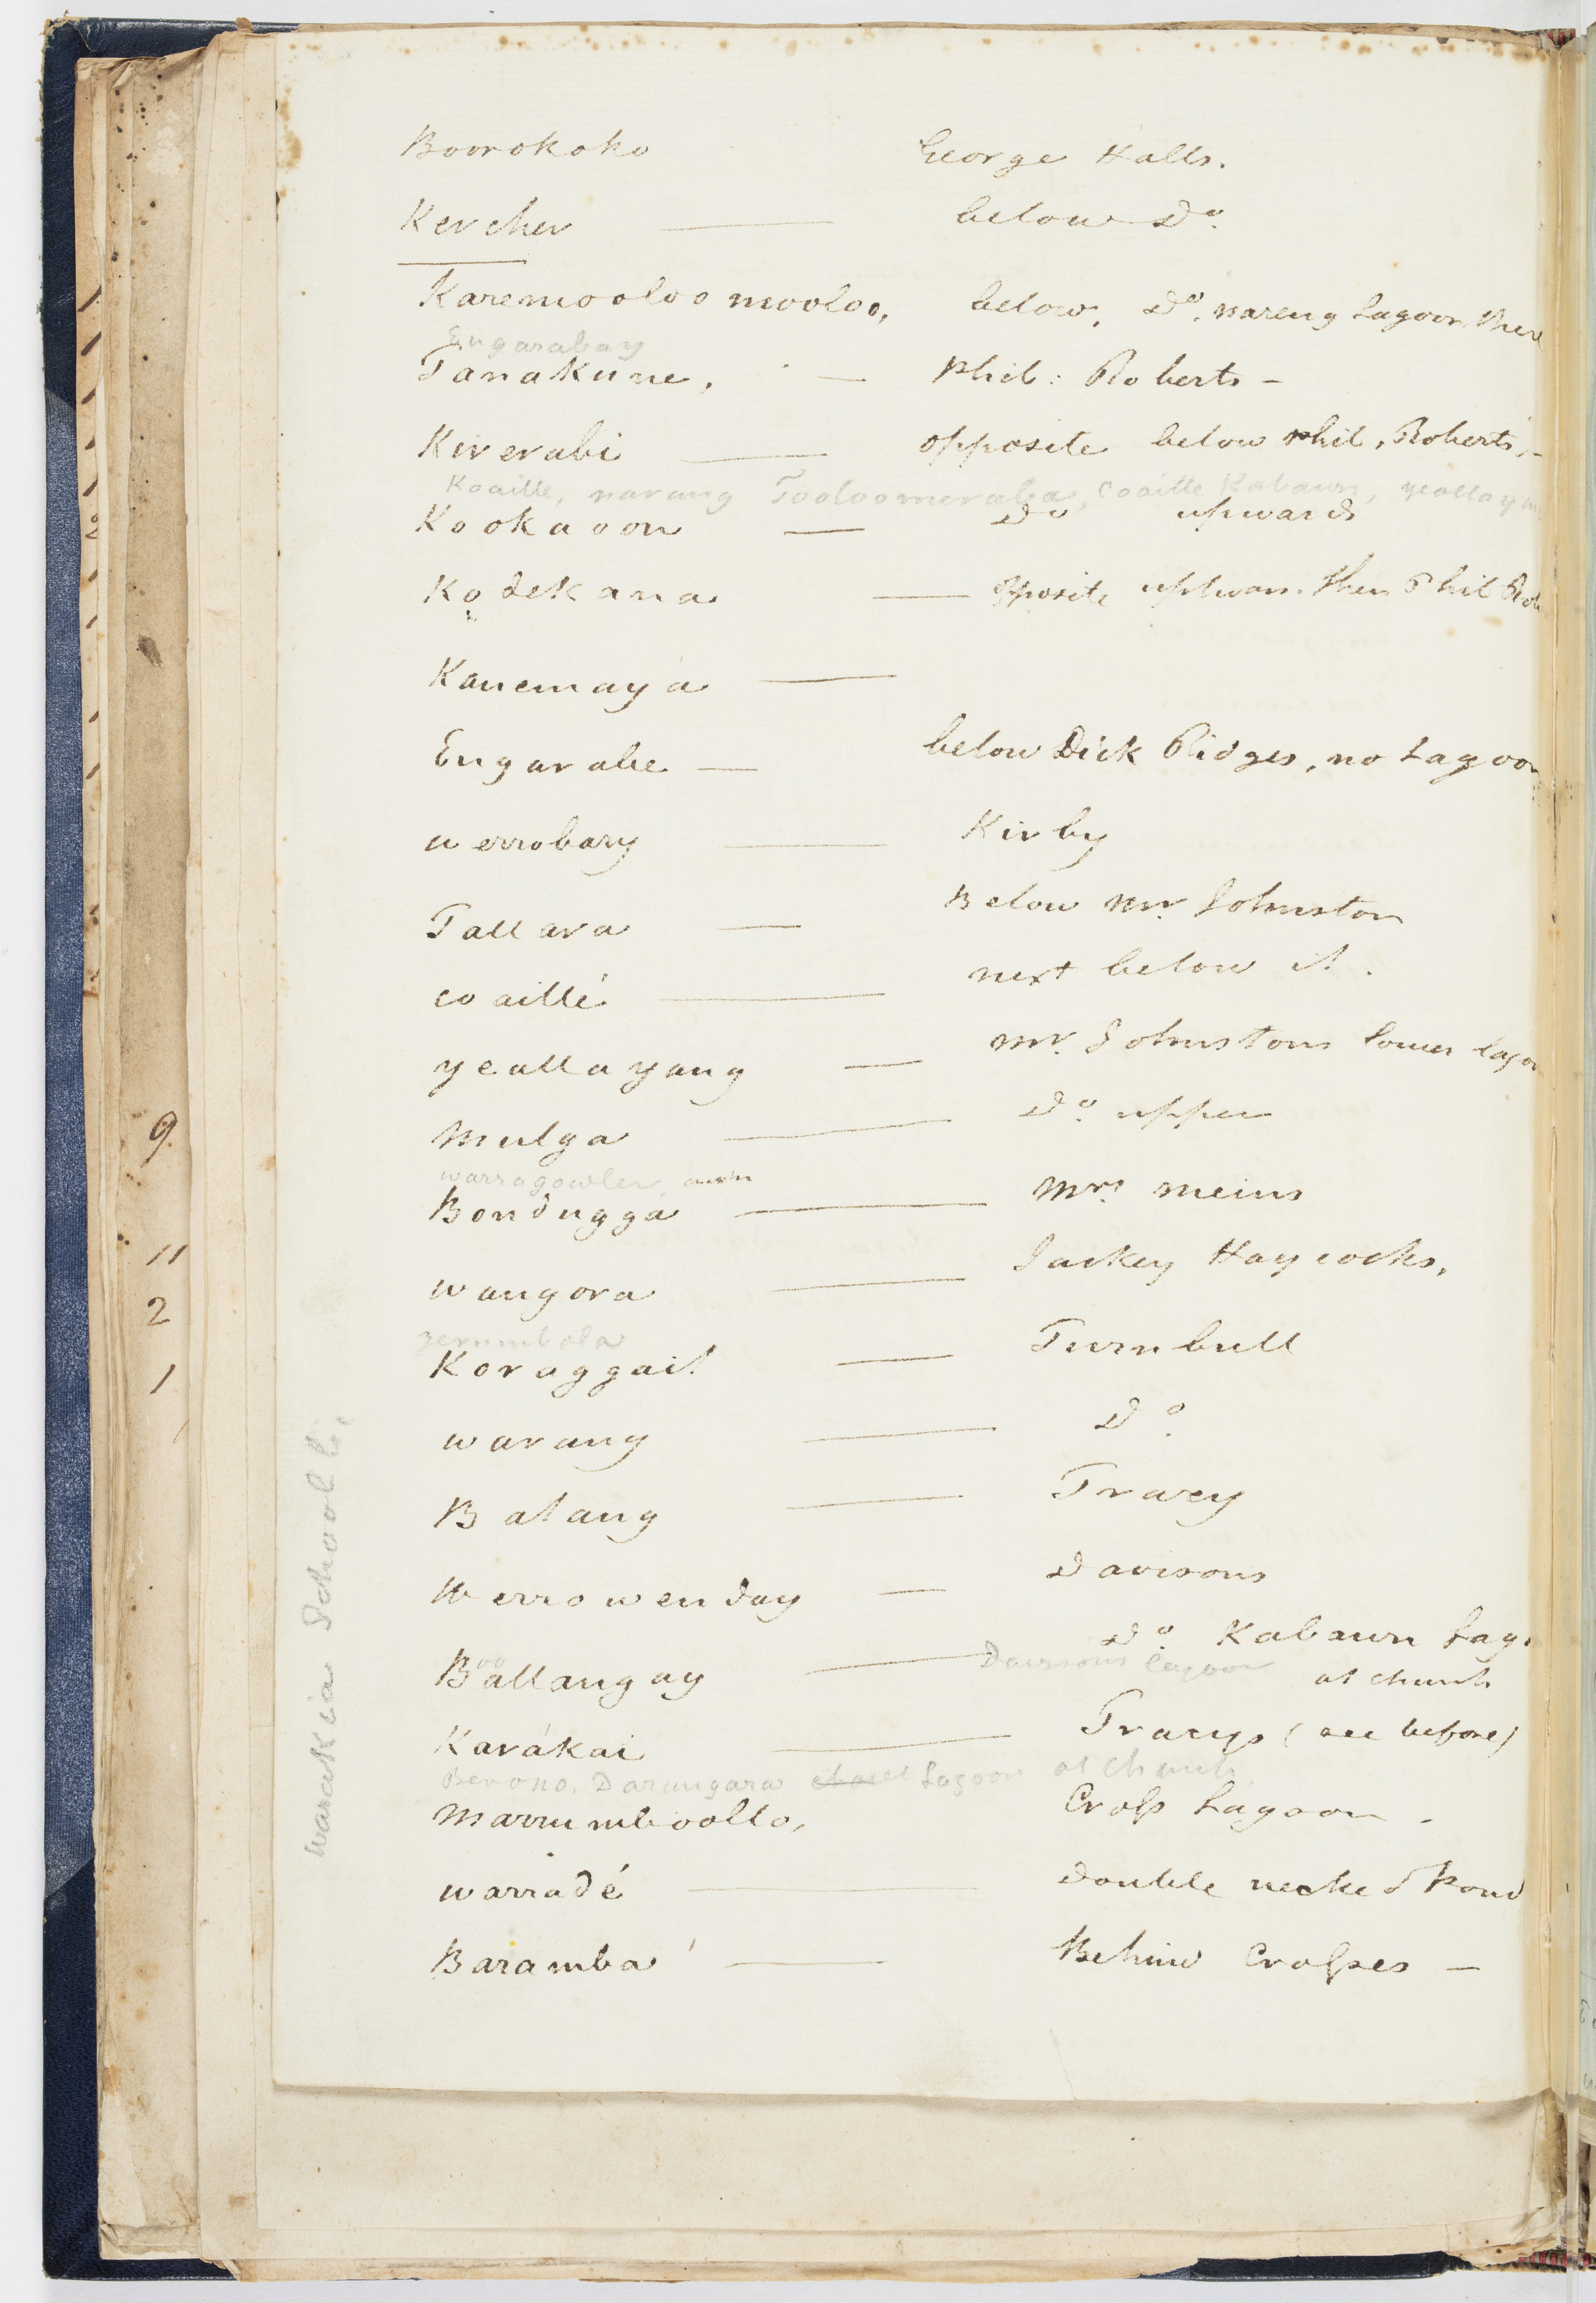 Boorokoko George Halls.
Kercher — below Do.
Karemooloo mooloo, below. Do. nareng Lagoon there
Engarabay
Tanakune, — Phil: Roberts -
Kiverabi — opposite below Phil. Roberts, -
Koaille, narang Tooloomeraba, Coaille Kabawn, yeallayan
Kookaoon — Do upwards
Kodekana — opposite upwar. then Phil Rob
Kanemaya —
Engarabe — below Dick Ridges, no Lagoon
werrobary — Kirby
Tallara — Below Mr. Johnston
coaillé — next below it.
yeallayang — Mr. Johnstons lower lagoo
Mulga — Do. upper
warragowler
Bondugga — Mrs. Meins
wangora — Jackey Haycocks,
Koraggait — Turnbull
warang — Do.
Batang — Tracy
Werrowenday — Davisons
Do. Kabawn Lag.
Boollangay — Davisons Lagoon at church
Karákai — Tracys (see before)
Berono. Darungara Lagoon at Church
Marrumboollo, Cross Lagoon -
warradé — Double necked Pond
Baramba' — Behind Crosses -
warakia School
9
11
2
1